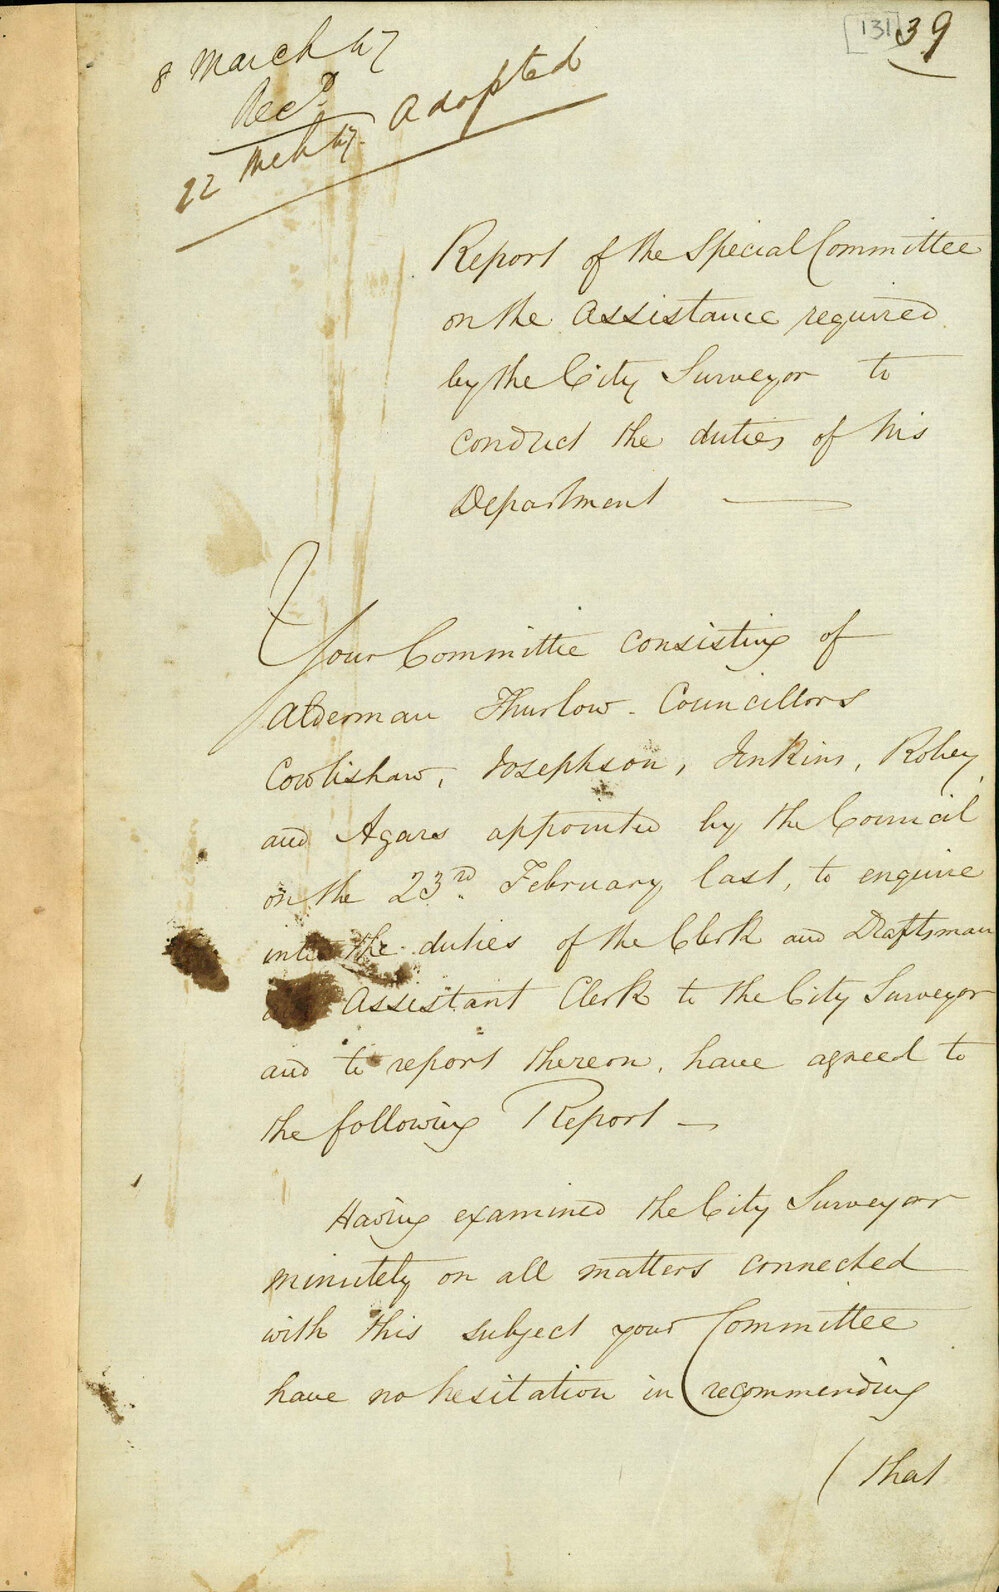 [131] 39
8 March 47
Recd.
22 Mch 47. Adopted
Report of the Special Committee
on the Assistance required
by the City Surveyor to
conduct the duties of his
Department
Your Committee consisting of
Alderman Thurlow. Councillors
Cowlishaw, Josephson, Jenkins, Robey,
and Agars appointed by the Council
on the 23rd February last, to enquire
into the duties of the Clerk and Draftsman
Assistant Clerk to the City Surveyor
and to report thereon, have agreed to
the following Report —
Having examined the City Surveyor
minutely on all matters connected
with this subject your Committee
have no hesitation in recommending
( that